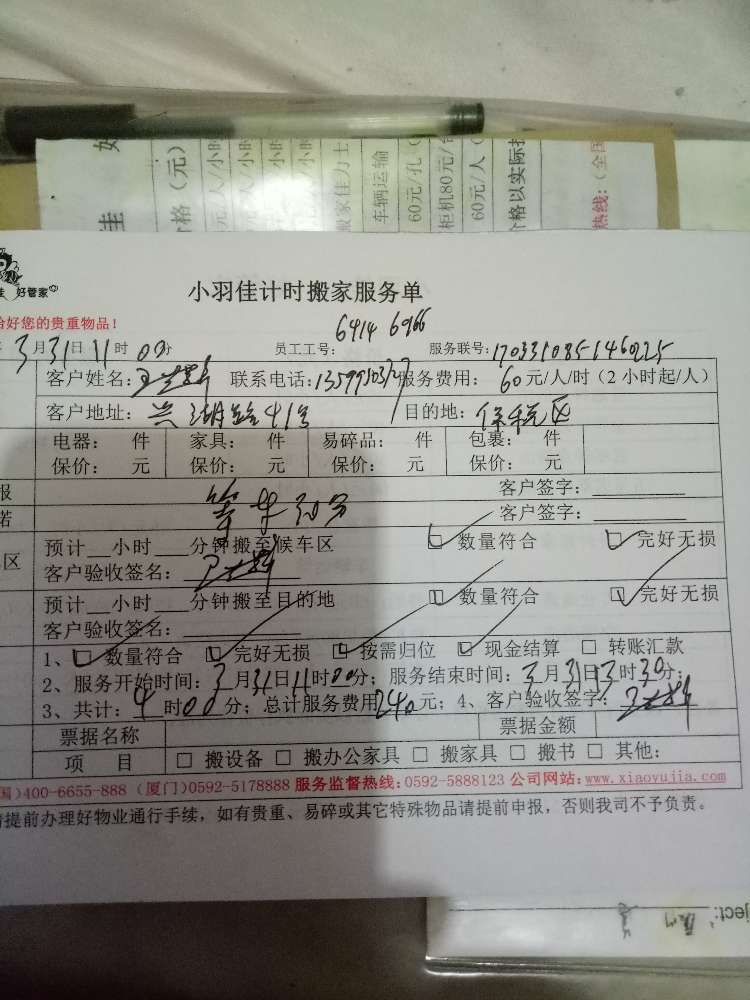 佳 好
价格（元）
元/人/小时
搬家佳力士
车辆运输
60元/孔（
柜机80元/台
60元/人（
价格以实际
热线：（全国
好管家
小羽佳计时搬家服务单
好您的贵重物品！
3月31日11时00分 员工工号：6414 6966 服务联号：1703310851460225
客户姓名： 联系电话： 服务费用：60元/人/时（2小时起/人）
客户地址：兴湖路41号 目的地：保税区
电器： 件 家具： 件 易碎品： 件 包裹： 件
保价： 元 保价： 元 保价： 元 保价： 元
报 客户签字：
诺 客户签字：
区 预计__小时___分钟搬至候车区 数量符合 完好无损
客户验收签名：
预计__小时___分钟搬至目的地 数量符合 完好无损
客户验收签名：
1、 数量符合 完好无损 按需归位 现金结算 转账汇款
2、服务开始时间：3月31日11时00分；服务结束时间：3月31日13时30分；
3、共计：4时00分；总计服务费用240元；4、客户验收签字：
票据名称 票据金额
项 目 搬设备 搬办公家具 搬家具 搬书 其他：
国）400-6655-888（厦门）0592-5178888 服务监督热线：0592-5888123 公司网站：www.xiaoyujia.com
请提前办理好物业通行手续，如有贵重、易碎或其它特殊物品请提前申报，否则我司不予负责。
ject: